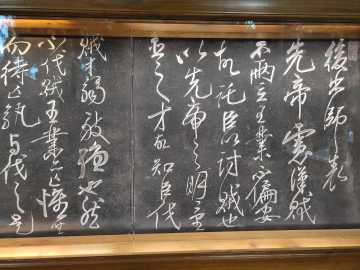 後出师表
先帝慮漢賊
不兩立王業不偏安
故託臣以討賊也
以先帝之明量
臣之才故知臣伐
賊才弱敵強也然
不伐賊王業亦亡惟坐
而待亡孰与伐之是